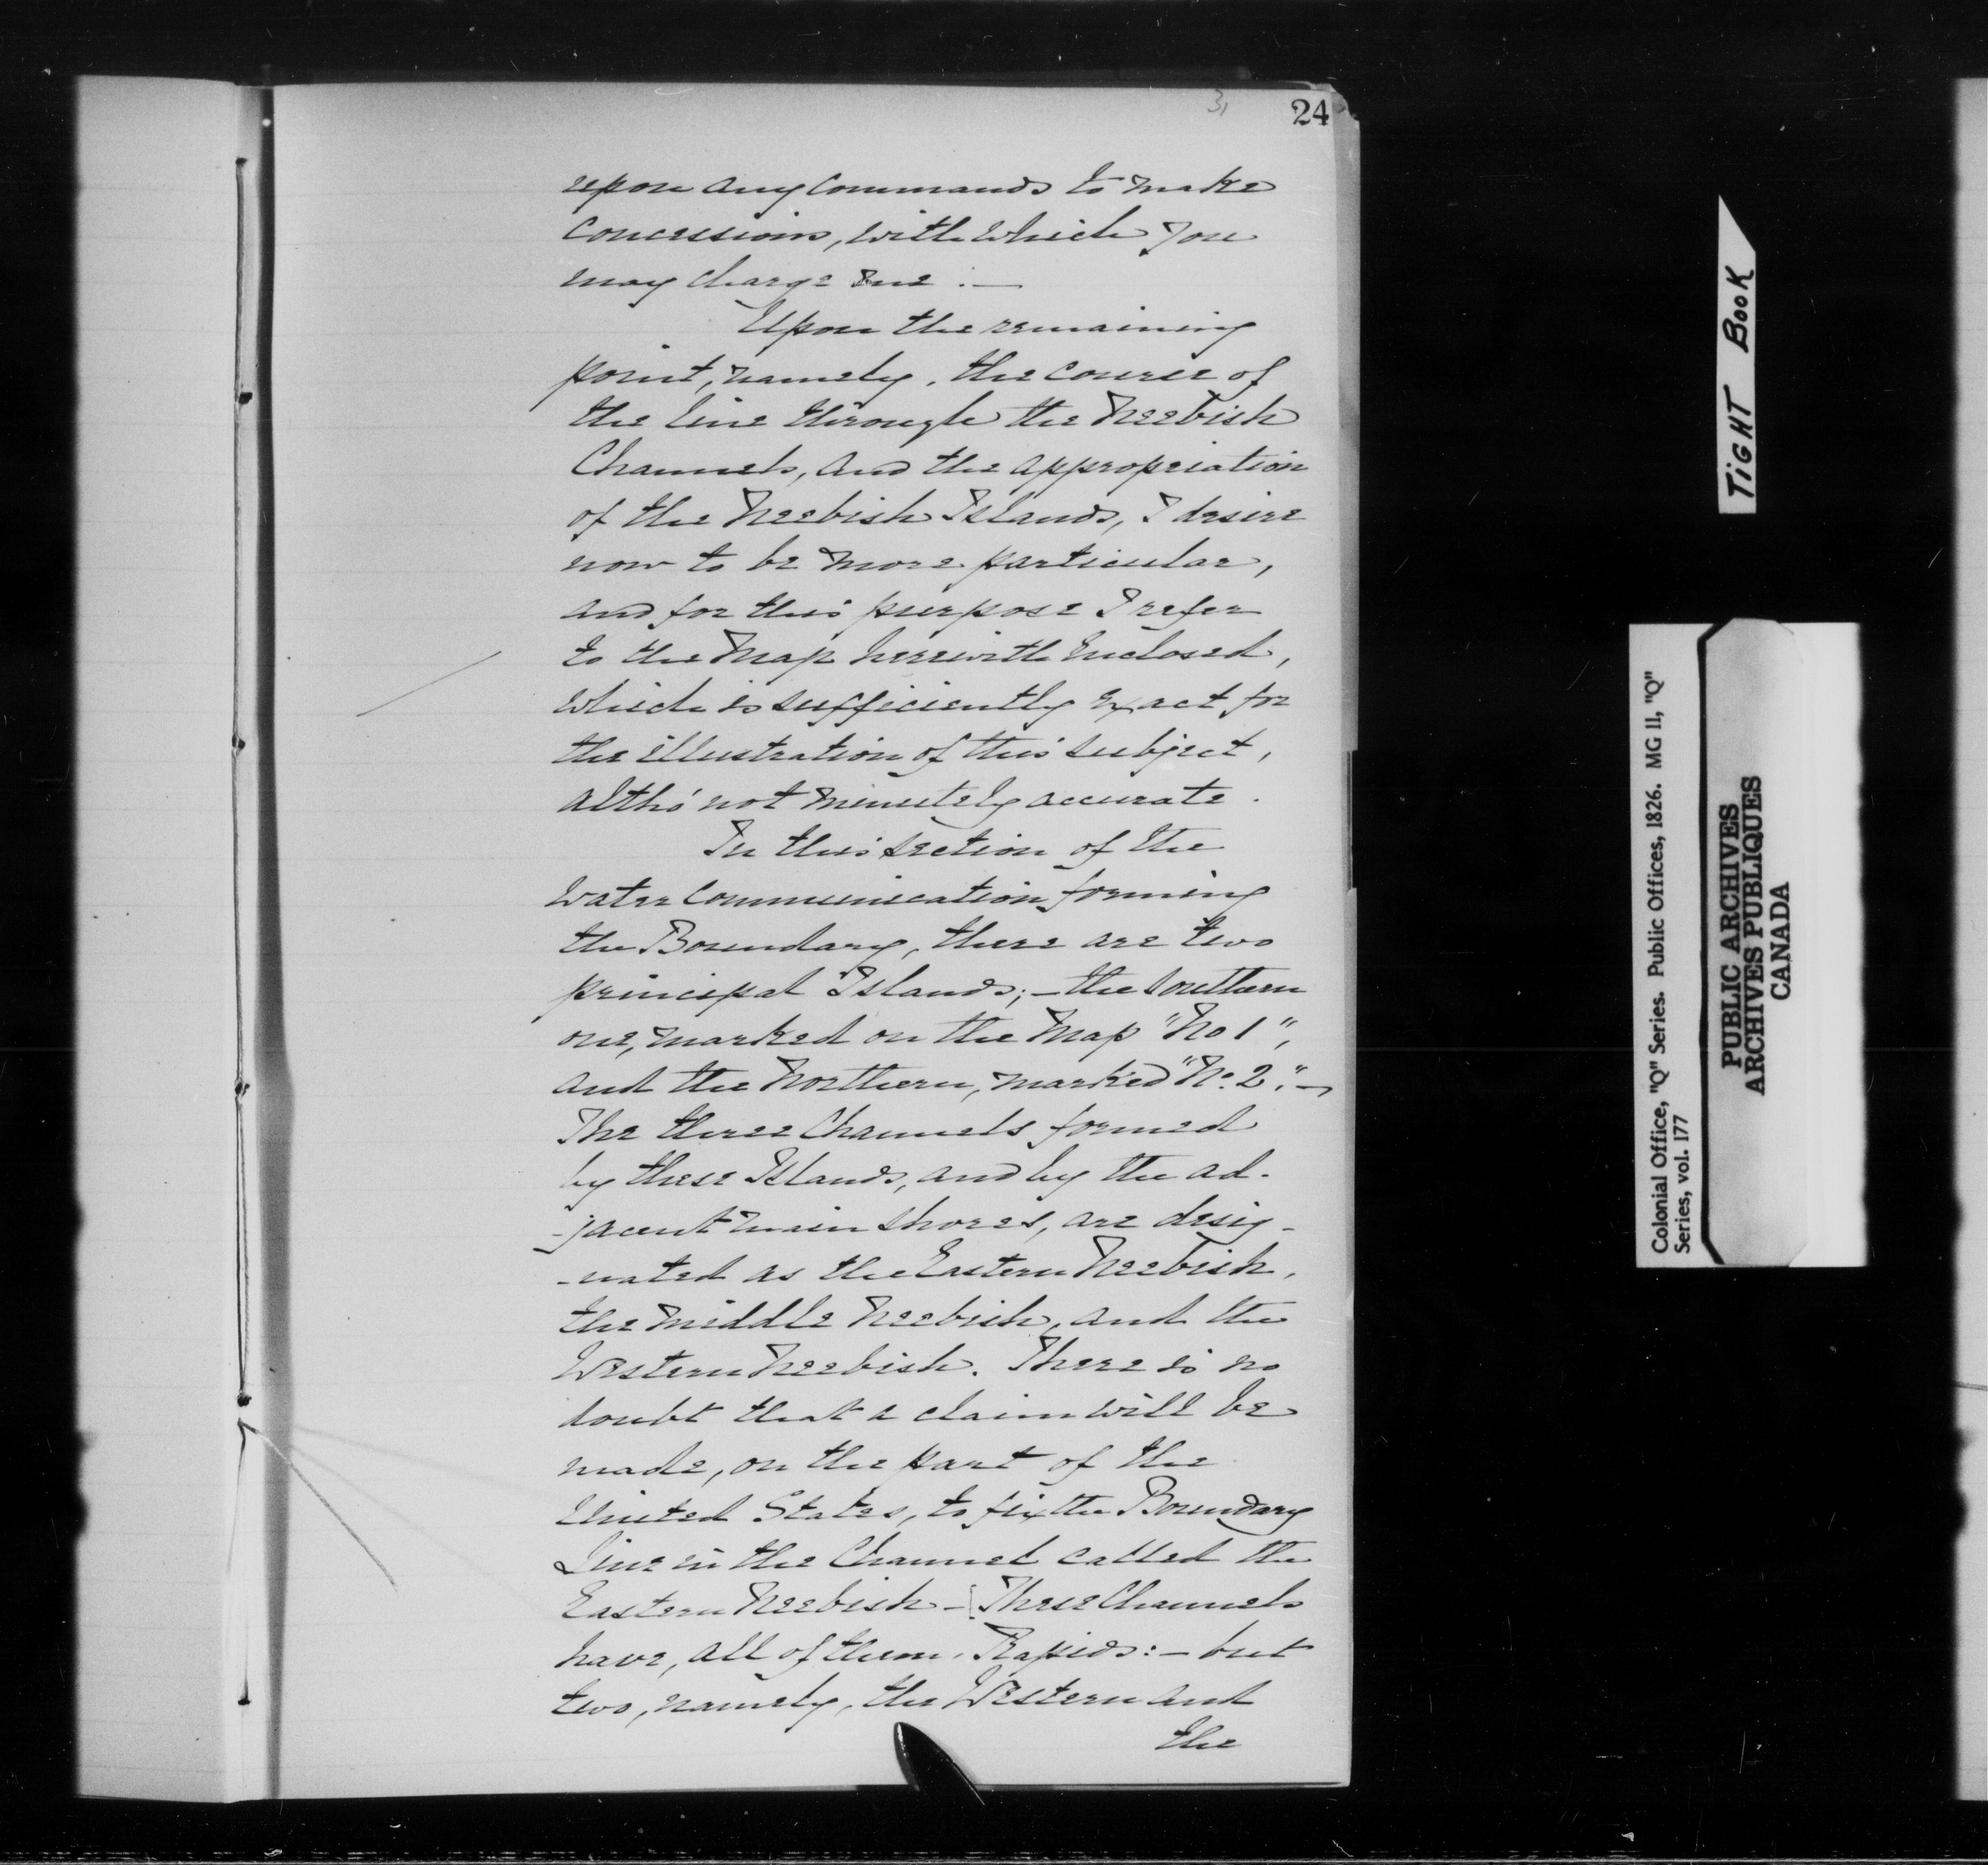 31
24
upon any commands to make
concessions, with which you
may charge me :—
Upon the remaining
point, namely, the course of
the line through the Neebish
Channels, and the appropriation
of the Neebish Islands, I desire
now to be more particular,
and for this purpose I refer
to the Map herewith Enclosed,
which is sufficiently exact for
the illustration of this subject,
altho' not minutely accurate.
In this section of the
Water Communication forming
the Boundary, there are two
principal Islands; — the Southern
one, marked on the Map "No 1",
and the Northern, marked "No. 2." —
The three Channels formed
by these Islands, and by the ad-
-jacent main shores, are desig-
-nated as the Eastern Neebish,
the Middle Neebish, and the
Western Neebish. There is no
doubt that a claim will be
made, on the part of the
United States, to fix the Boundary
Line in the Channel called the
Eastern Neebish — [These Channels
have, all of them, Rapids: — but
two, namely, the Western and
the
TIGHT BOOK
Colonial Office, "Q" Series. Public Offices, 1826. MG 11, "Q"
Series, vol. 177
PUBLIC ARCHIVES
ARCHIVES PUBLIQUES
CANADA